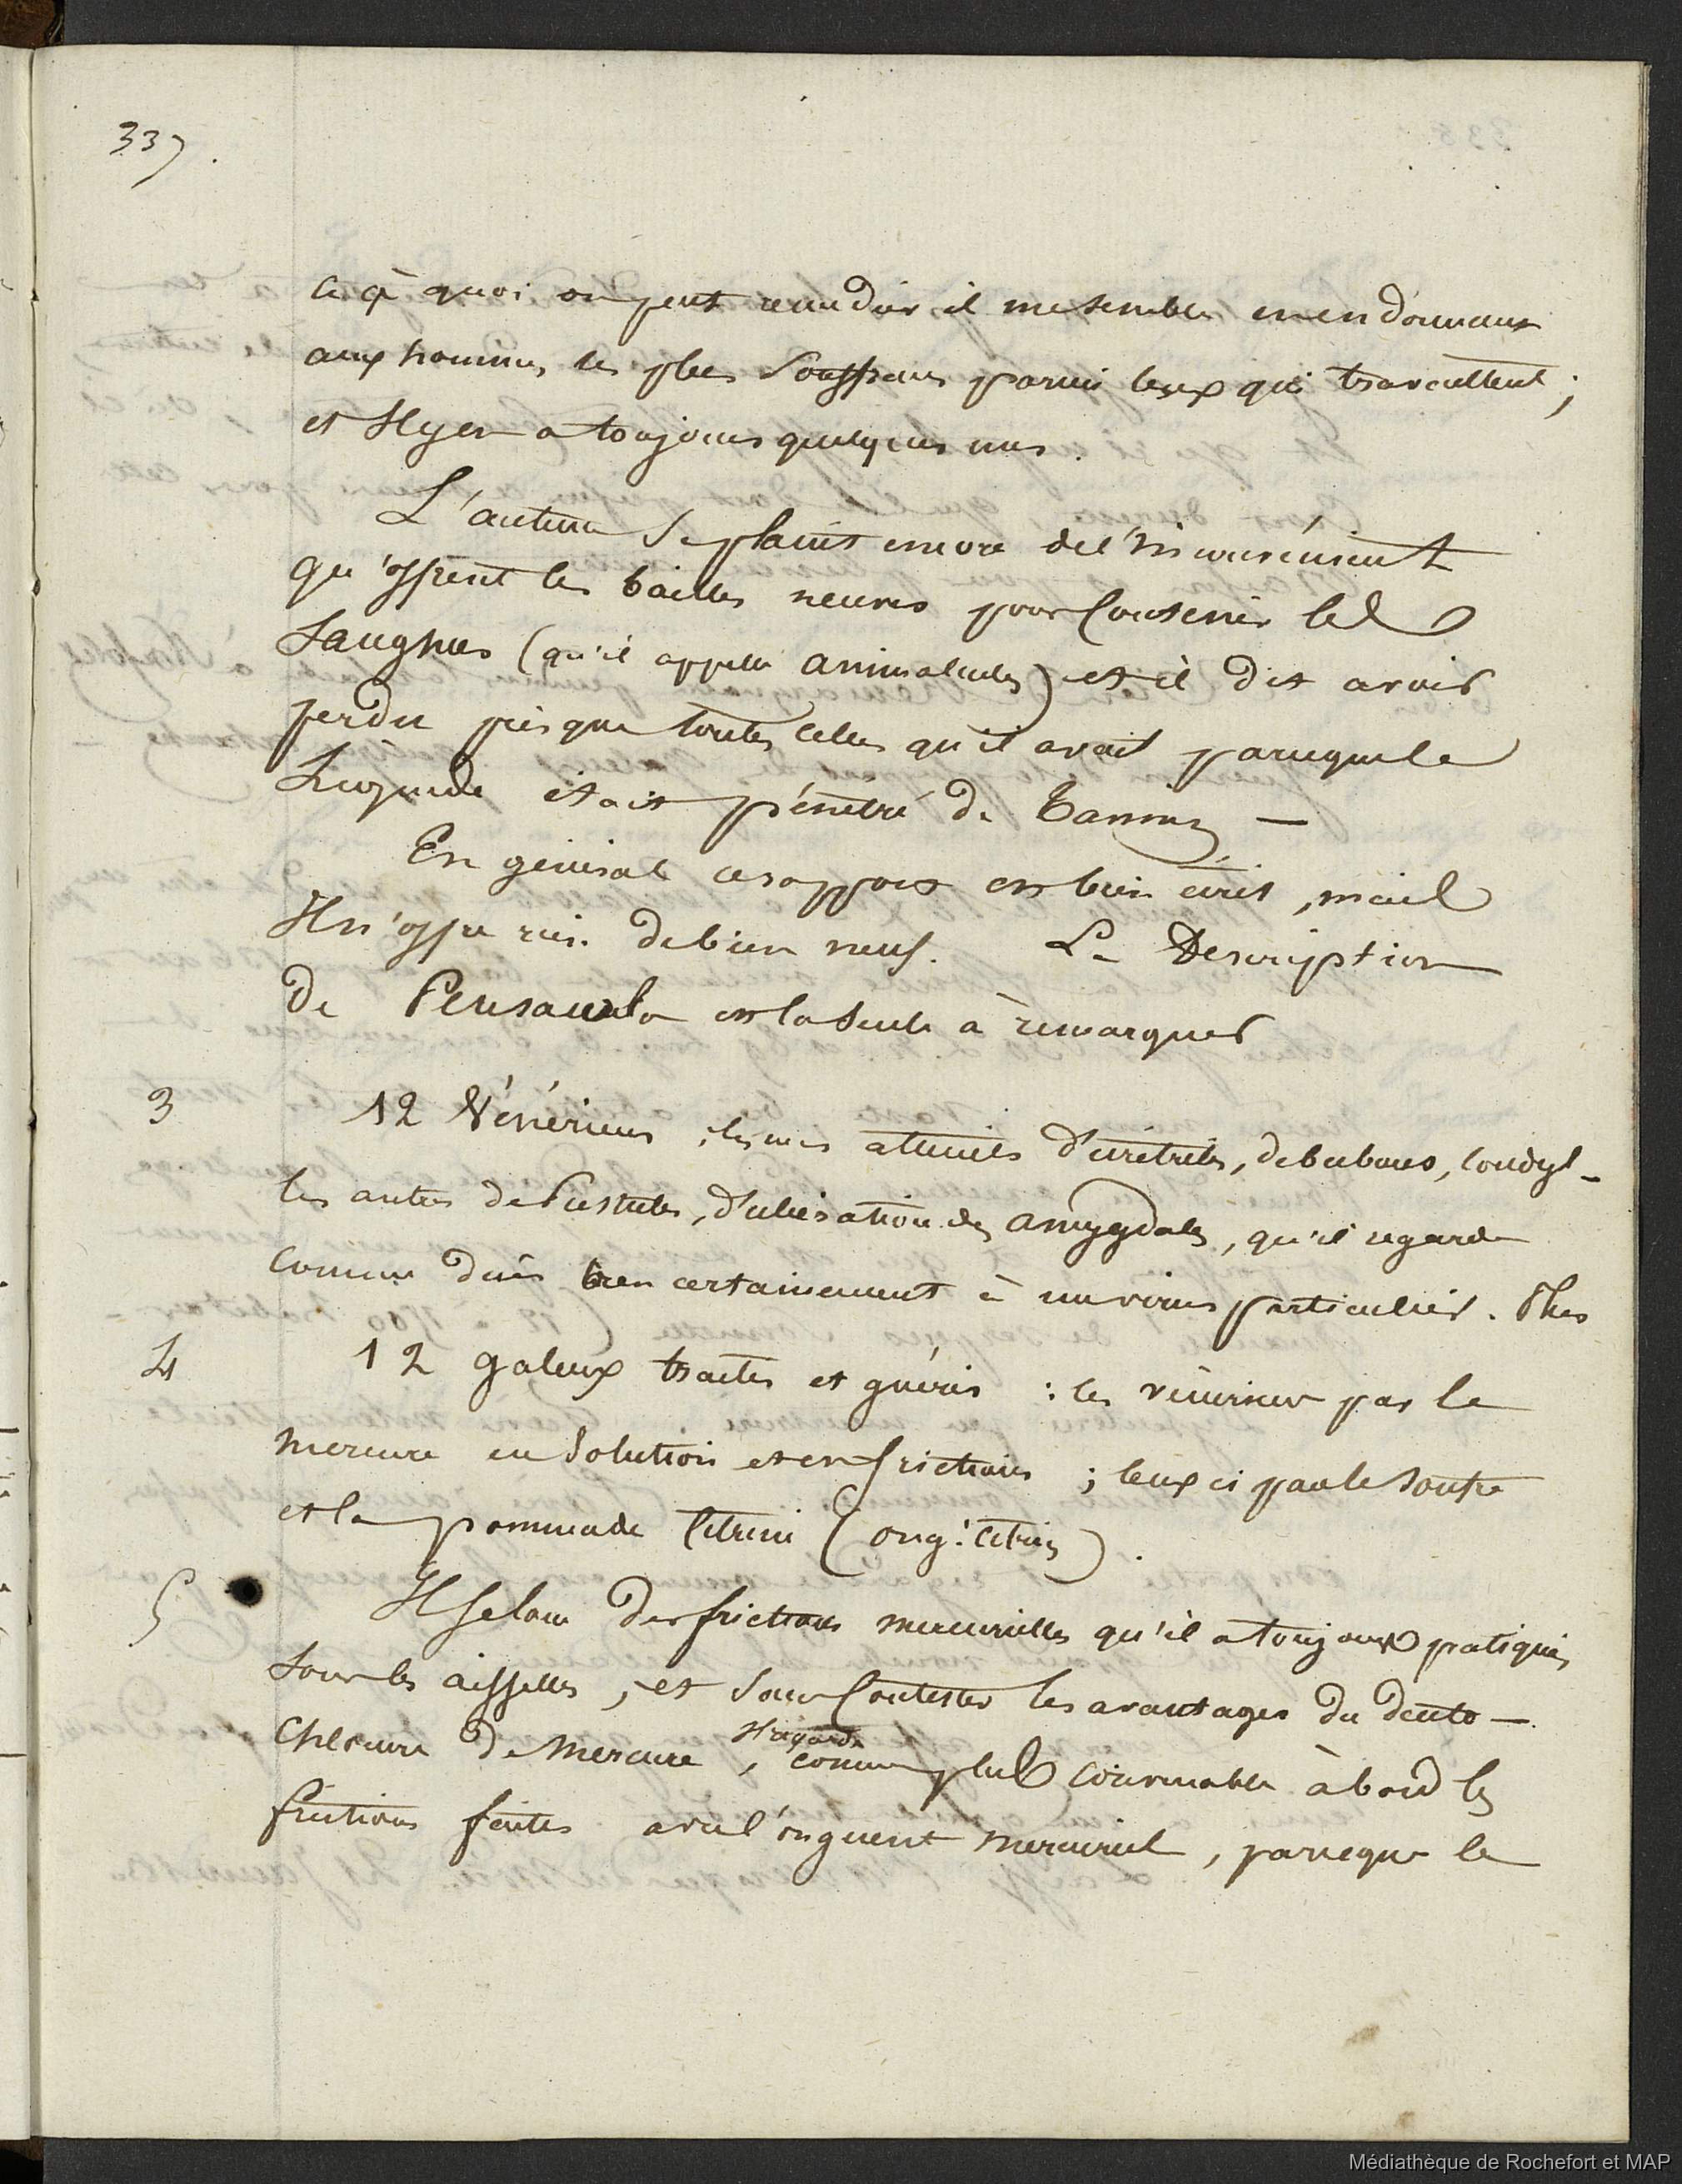 337.
ce à quoi on peut remedier il me semble en en donnant
aux hommes les plus souffrans parmi ceux qui travaillent ;
et Il y en a toujours quelques uns.
L'auteur Se plaint encore de l'inconvénient
qu'offrent les bailles neuves pour Contenir les
Sangsues (qu'il appelle animalcules) et il dit avoir
perdu presque toutes celles qu'il avait parceque le
Liquide était pénétré de Tannin —
En général ce rapport est bien écrit, mais
Il n'offre rien de bien neuf. La Description
de Pensacola est la Seule à remarquer
3
12 Vénériens ; les uns atteints d'urétrites, de bubons, condyl-
les autres de Pustules, d'ulcération des amygdales, qu'il regarde
comme dûes bien certainement à un virus particulier. Plus
4
12 galeux traités et guéris : les vénériens par le
mercure en Solution et en frictions ; ceux ci par le soufre
et la pommade Citrine (ong: citrin).
5
Il se loue des frictions mercurielles qu'il a toujours pratiquées
sous les aisselles, et sans Contester les avantages du deuto-
Chlorure de Mercure, Il regarde comme plus convenable à bord les
frictions faites avec l'onguent mercuriel, parceque le
Médiathèque de Rochefort et MAP